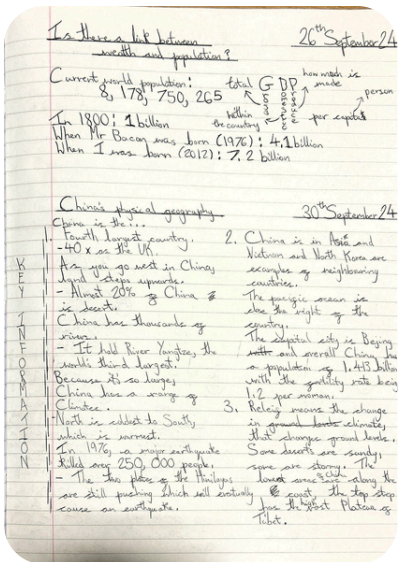 Is there a link between
wealth and population?
26th September 24
Current world population:
8,178,750,265
total GDP
Gross
Domestic
Produce
how much is
made
within
the country
per capita
person
In 1800: 1 billion
When Mr Bacon was born (1976): 4,1 billion
When I was born (2012): 7.2 billion
China's physical geography
30th September 24
KEY INFORMATION
China is the...
1. Fourth largest country.
- 40 x as the UK.
As you go west in China,
land steps upwards.
- Almost 20% of China
is desert.
China has thousands of
rivers.
- It hold River Yangtze, the
world's third largest.
Because it's so large,
China has a range of
Climates.
North is coldest to South,
which is warmest.
In 1976, a major earthquake
killed over 250,000 people.
- The two plates of the Himilayas
are still pushing which will eventually
cause an earthquake.
2. China is in Asia and
Vietnam and North Korea are
examples of neighbouring
countries.
The pacific ocean is
also the right of the
country.
The capital city is Beijing
and overall China has
a population of 1.413 billion
with the fertility rate being
1.2 per woman.
3. Releif means the change
in ground levels climate,
that changes ground levels.
Some deserts are sandy,
some are stony. The
lowest areas are along the
coast, the top step
has the highest Plateau of
Tibet.